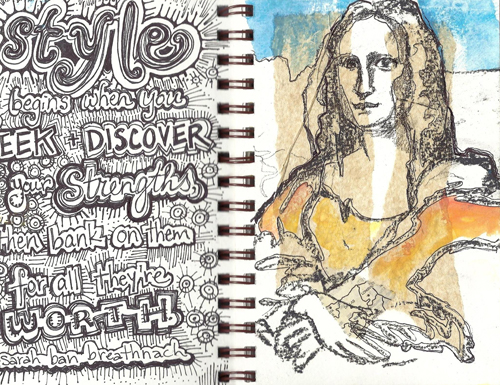 style
begins when you
EEK + DISCOVER
your strengths,
then bank on them
for all they're
WORTH.
sarah ban breathnach